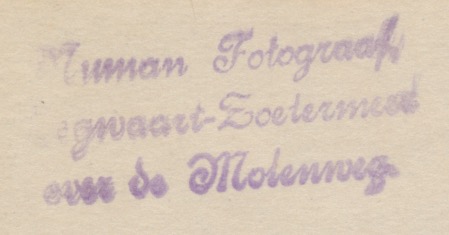 Fotograaf,
Zegwaart-Zoetermeer
over de Molenweg.